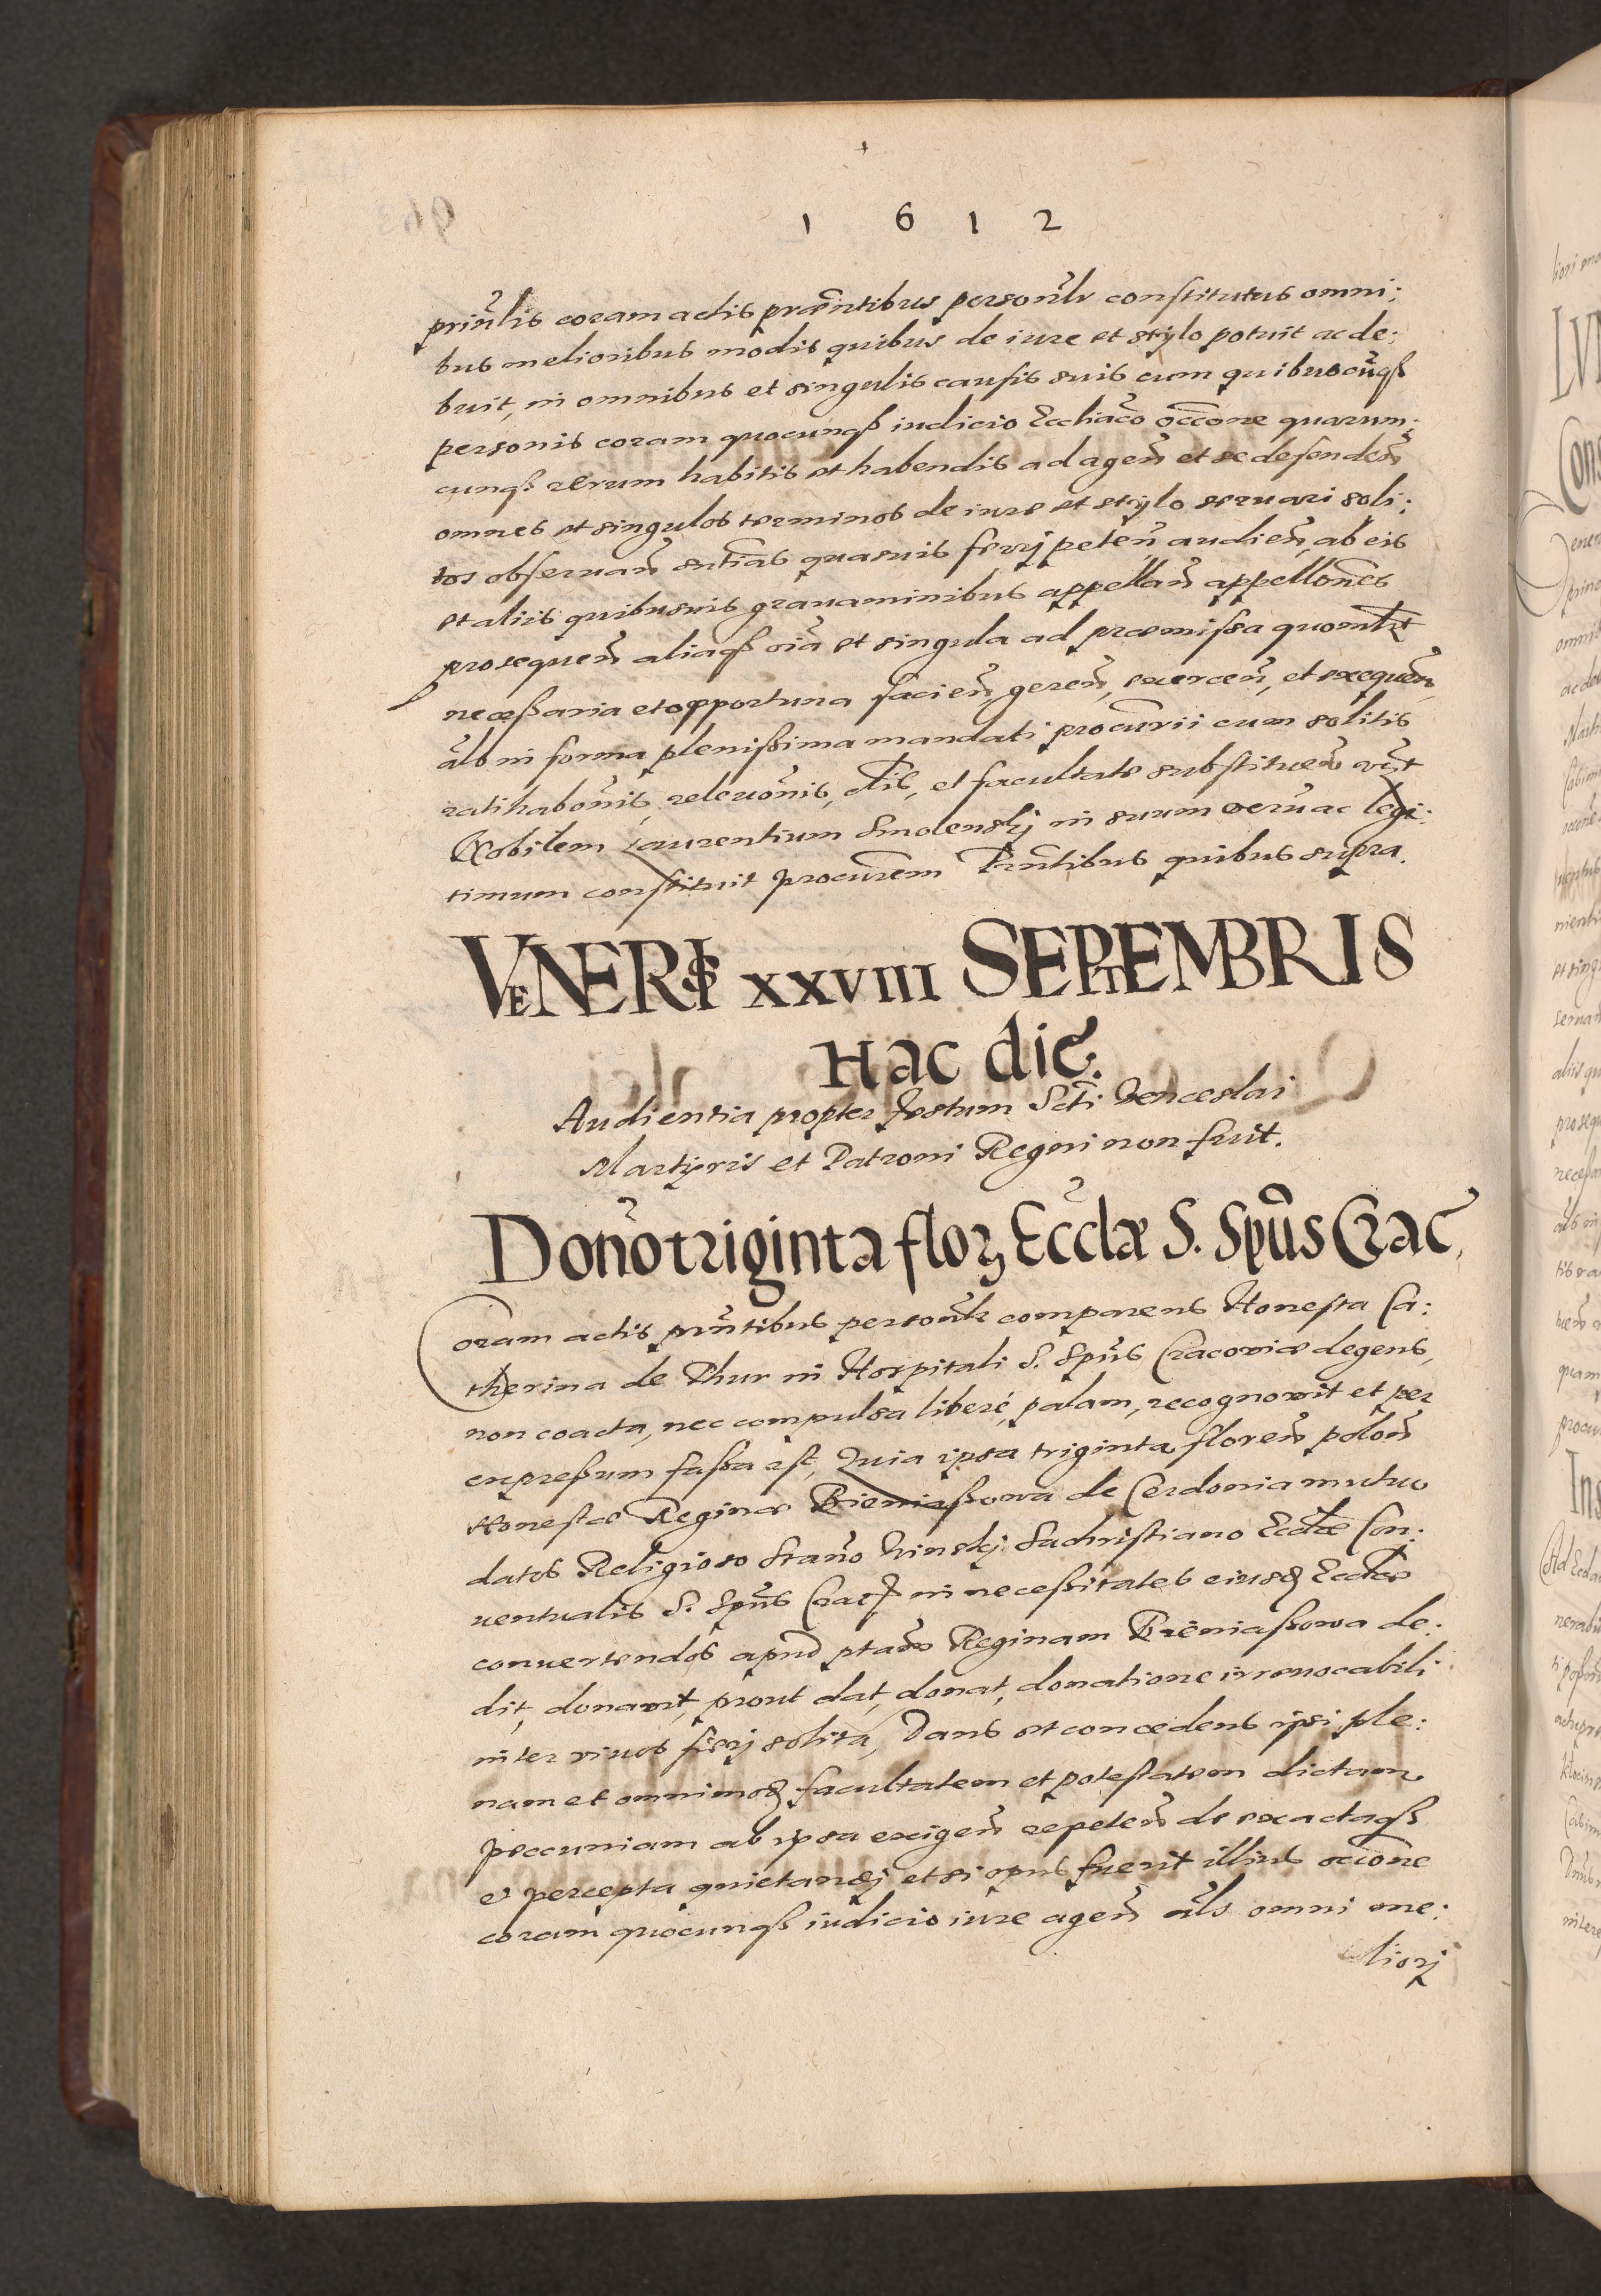 1 6 1 2
prinćlis coram actis præntibus personlr constitutus omni:
bus melioribus modis quibus de iure et stylo potuit ac de:
buit, in omnibus et singulis causis suis cum quibuscunqß
personis coram quocunqß iudicio Ecchiaco occone quarum:
cunqß rerum habitis et habendis ad agen et se defenden
omnes et singulos terminos de iure et stylo seruari soli:
tos obseruan sntias quasuis ferrj peten audien, ab eis
et aliis quibusuis grauaminibus appellan appellones
prosequen aliaqß oia et singula ad præmissa quomlt
necæßaria et opportuna facien, geren, exercen, et exequen,
als in forma plenißima mandati procurii cum solitis
ratihabonis, releuonis, clis, et facultate substituen
Nobilem Laurentium Smolenskj in suum veru ac legi:
timum constituit procurem Prntibus quibus supra.
VENERIS XXVIII SEPTEMBRIS
Hac die.
Audientia propter festum Scti Venceslai
Martyris et Patroni Regni non fuit.
Dono triginta flor Eccclæ S. Spus Crac,
Coram actis prntibus personlr comparens Honesta Ca:
therina de Thur in Hospitali S. Spus Cracoviæ degens,
non coacta, nec compulsa liberè, palam, recognovit et per
expreßum faßa est, Quia ipsa triginta floren polon
Honestæ Reginæ Bieniaßowa de Cerdonia mutuo
datos Religioso Stano Sachristiano Ecclæ Con:
uentualis S. Spus Crac in neceßitates eiusd Ecclæ
conuertendos apud ptam Reginam Bieniaßowa de:
dit, donavit, prout dat, donat, donatione irreuocabili
inter viuos fierj solita, Dans et concedens ipsi ple:
nam et omnimod facultatem et potestatem dictam
peccuniam ab ipsa exigen repeten de exactaqß
et percepta quietandj et si opus fuerit illius occione
coram quocunqß iudicio iure agen als omni me:
liorj